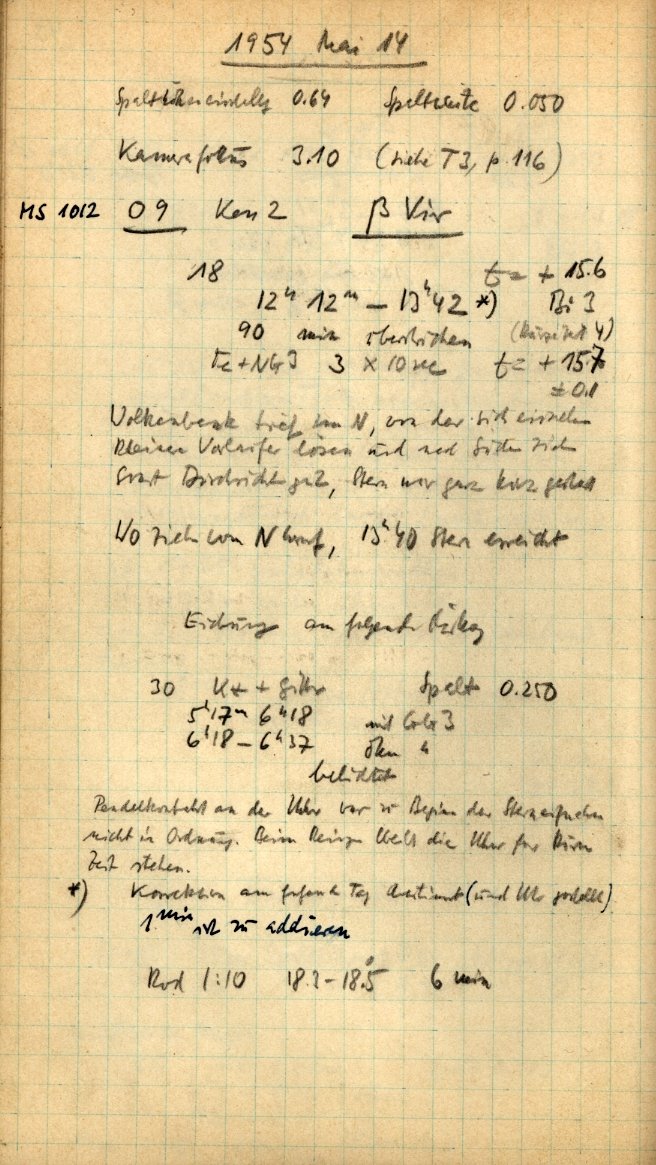 1954 Mai 14
0.64 Spaltweite 0.050
Kamerafokus 3.10 (siehe T3, p. 116)
MS 1012 09 Ken 2 β Vir
18 t = + 15.6
12ʰ 12ᵐ – 13ʰ42 *) Bi 3
90 min (4)
Fe + NGr 3 3 × 10 sec t = + 15.7
± 0.1
Wolkenbank tief im N, von der sich einzelne
kleine Vorläufer lösen und nach Süden ziehen
Sonst Durchsicht gut, Stern war ganz kurz
Wo ziehen von N herauf, 13ʰ40 Stern erreicht
Eichung am folgenden
30 + Gitter Spalt 0.250
5ʰ17ᵐ 6ʰ18 mit GrGr 3
6ʰ18 – 6ʰ37 ohne "
belichtet
Pendelkontakt an der Uhr war zu Beginn der Sternaufnahme
nicht in Ordnung. Beim blieb die Uhr für kurze
Zeit stehen.
*) Korrektion am folgenden Tag bestimmt (und Uhr gestellt)
1 min ist zu addieren
Rod 1:10 18.2 – 18.5° 6 min